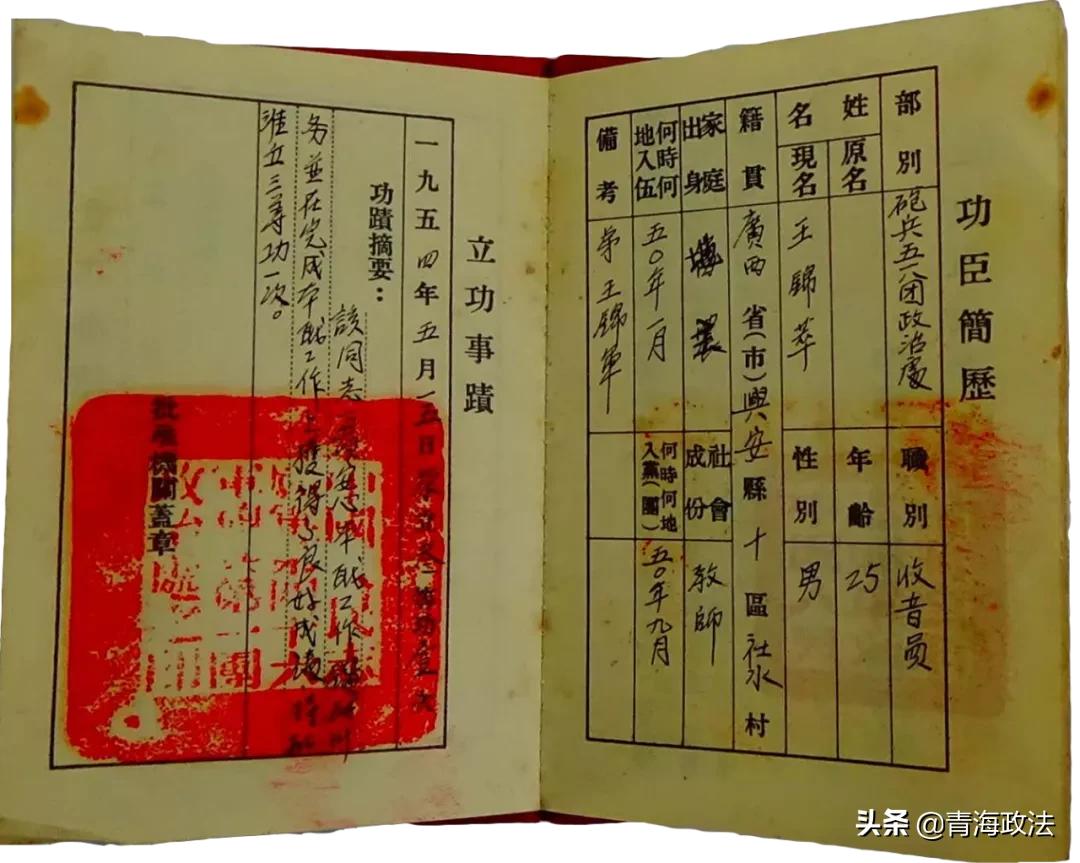 功臣簡歷
部別 砲兵五一八团政治處 職別 收音員
姓名 原名 年齡 25
現名 王錦萃 性別 男
籍貫 廣西省(市)興安縣十區社水村
家庭出身 農 社會成份 教師
何時何地入伍 五〇年一月 何時何地入黨(團) 五〇年九月
備考 弟王錦軍
立功事蹟
一九五四年五月一五日 三等功壹次
功蹟摘要:
該同志 安心本职工作
务並在完成本职工作上獲得了良好成绩 特
准立三等功一次。
批准機關蓋章
头条 @青海政法